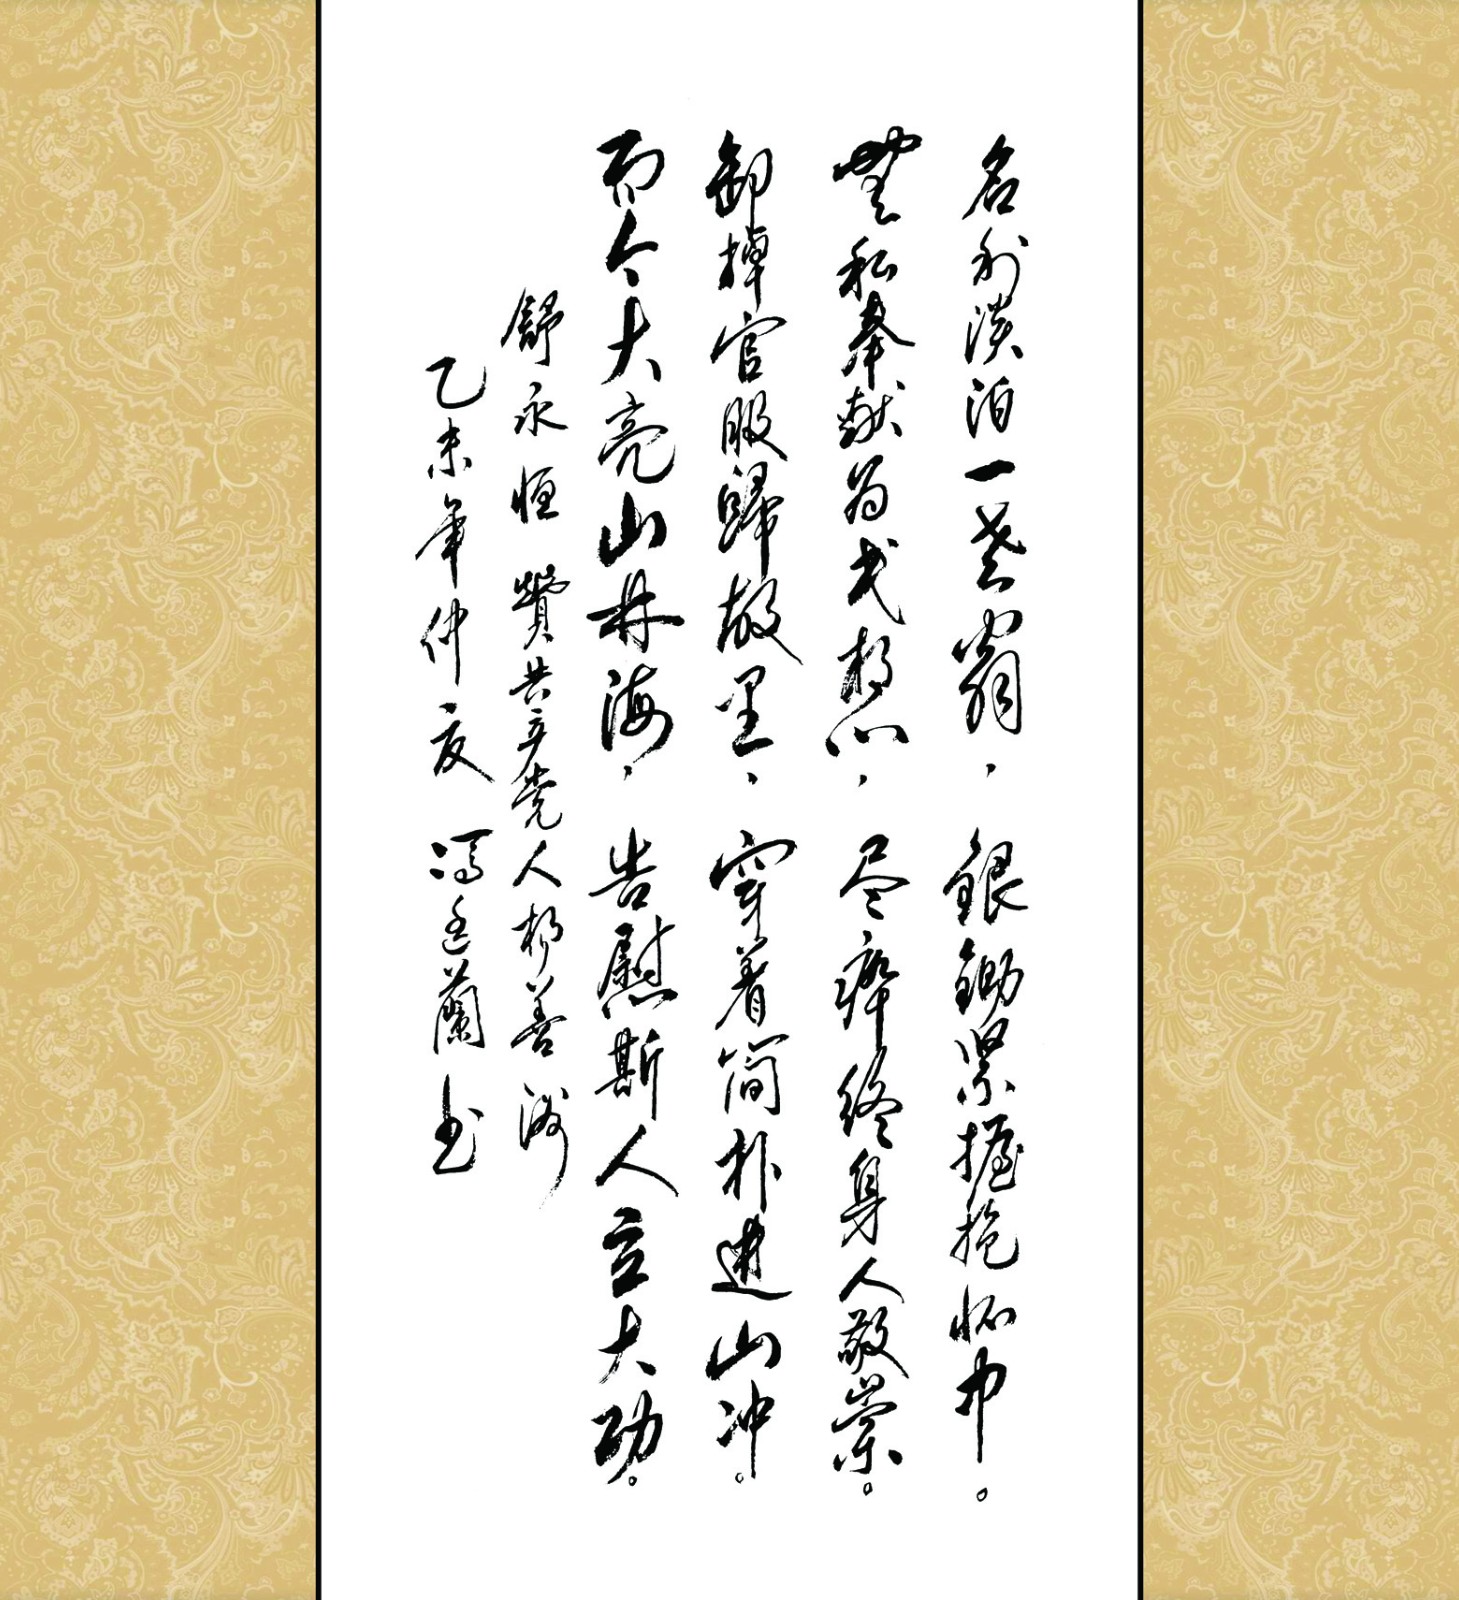 名利淡泊一老翁，銀鋤緊握抱怀中。
無私奉献为民想心，尽瘁终身人敬崇。
卸掉官服歸故里，穿着简朴進山冲。
而今大亮山林海，告慰斯人立大功。
舒永恒 贊共产党人杨善洲
乙未年仲夏 冯廷蘭 书